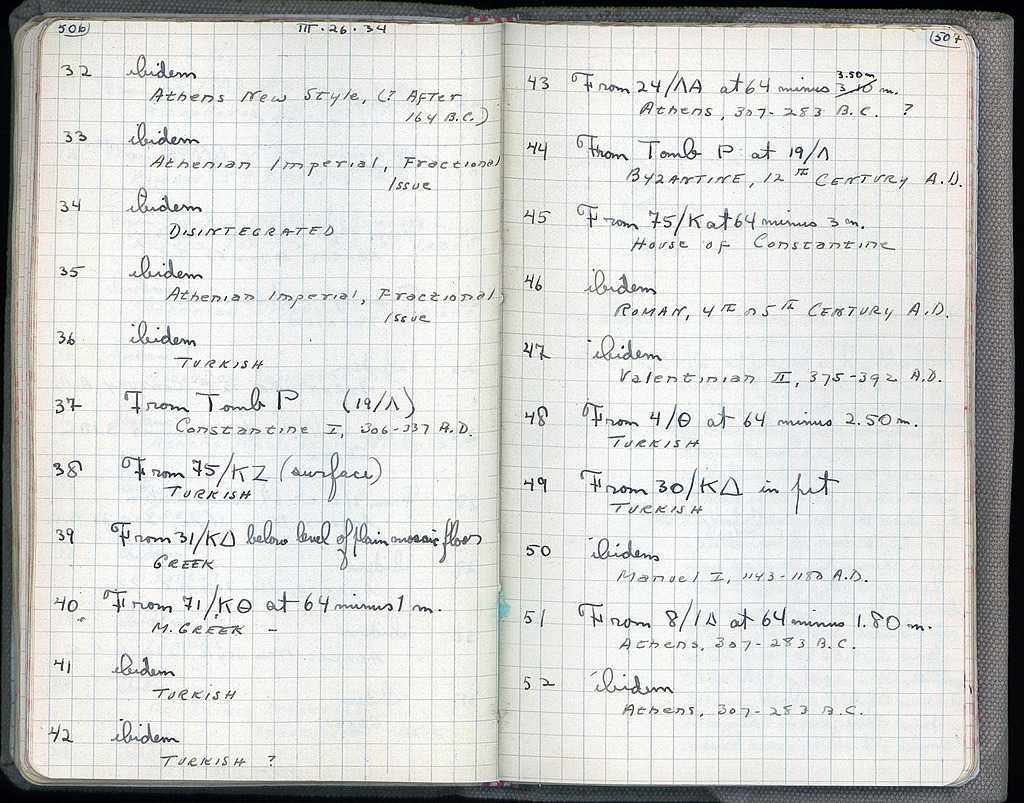 506
III · 26 · 34
32 ibidem
Athens New Style, (? After
164 B.C.)
33 ibidem
Athenian Imperial, Fractional
Issue
34 ibidem
DISINTEGRATED
35 ibidem
Athenian Imperial, Fractional
Issue
36 ibidem
TURKISH
37 From Tomb P (19/Λ)
Constantine I, 306-337 A.D.
38 From 75/KZ (surface)
TURKISH
39 From 31/KΔ below level of plain mosaic floor
GREEK
40 From 71/KΘ at 64 minus 1 m.
M. GREEK –
41 ibidem
TURKISH
42 ibidem
TURKISH ?
507
43 From 24/ΛA at 64 minus 3.50m m.
Athens, 307-283 B.C. ?
44 From Tomb P at 19/Λ
BYZANTINE, 12TH CENTURY A.D.
45 From 75/K at 64 minus 3 m.
House of Constantine
46 ibidem
ROMAN, 4TH or 5TH CENTURY A.D.
47 ibidem
Valentinian II, 375-392 A.D.
48 From 4/Θ at 64 minus 2.50 m.
TURKISH
49 From 30/KΔ in pit
TURKISH
50 ibidem
Manuel I, 1143-1180 A.D.
51 From 8/ΙΔ at 64 minus 1.80 m.
Athens, 307-283 B.C.
52 ibidem
Athens, 307-283 B.C.